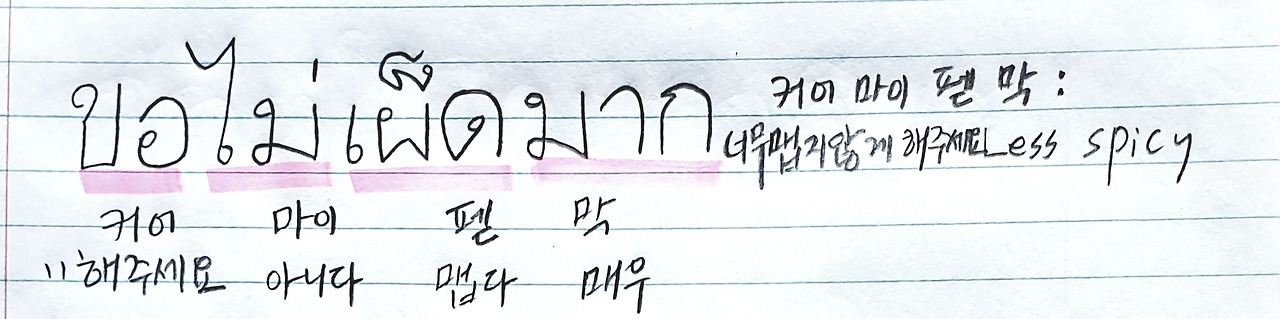 ขอไม่เผ็ดมาก 커어 마이 펟 막 :
너무맵지않게 해주세요 Less spicy
커어 마이 펟 막
"해주세요 아니다 맵다 매우